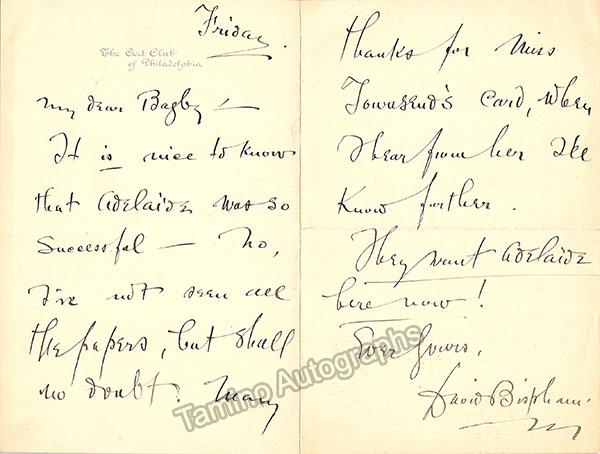 Friday.
The Art Club
of Philadelphia
My dear Bagby —
It is nice to know
that Adelaide was so
successful — No,
I've not seen all
the papers, but shall
no doubt. Many
thanks for Miss
Townsend's card, when
I hear from her I'll
know further.
They want Adelaide
here now!
Ever yours,
David Bispham.
Tamino Autographs